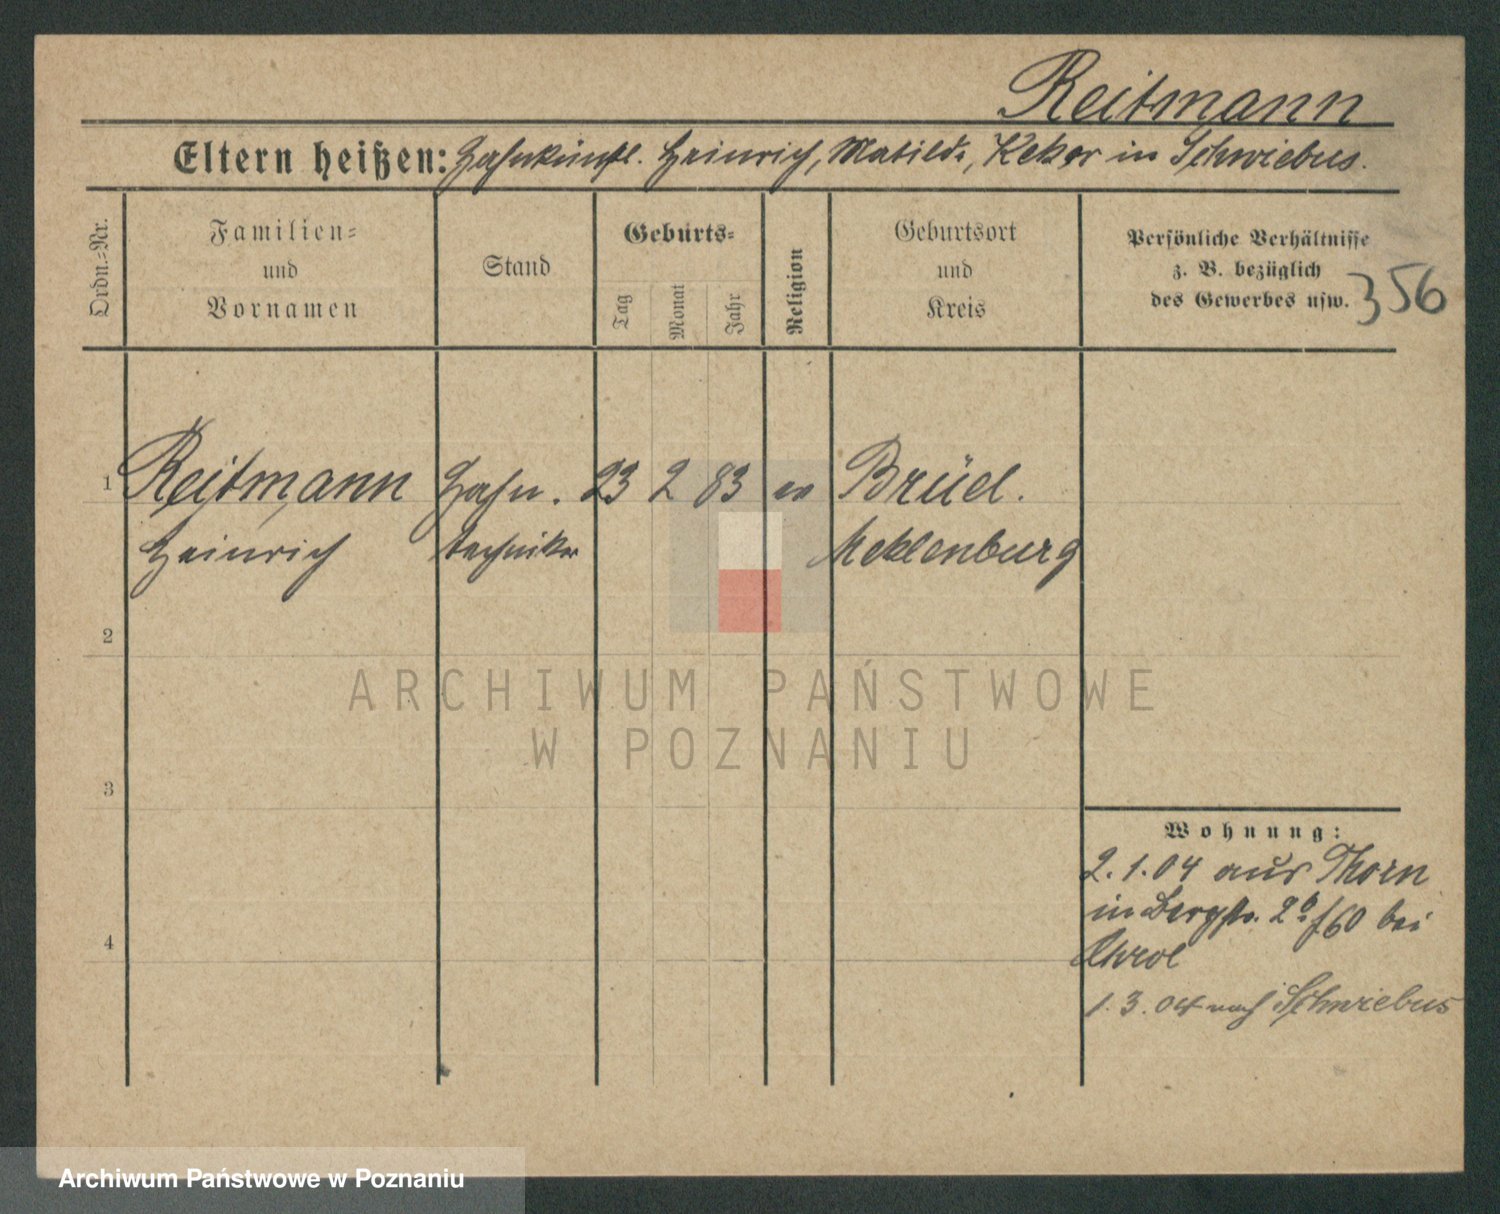 Reitmann
Eltern heißen: Zahnkünstl. Heinrich, Matilde, Keker in Schwiebus.
Ordn.-Nr.
Familien-
und
Vornamen
Stand
Geburts-
Tag
Monat
Jahr
Religion
Geburtsort
und
Kreis
Persönliche Verhältnisse
z. B. bezüglich
des Gewerbes usw.
356
1 Reitmann Zahn. 23 2 83 ev Brüel.
Heinrich techniker Meklenburg
2
ARCHIWUM PAŃSTWOWE
W POZNANIU
3
Wohnung:
2.1.04 aus Thorn
in Bergstr. 2b f60 bei
4
1.3.04 nach Schwiebus
Archiwum Państwowe w Poznaniu